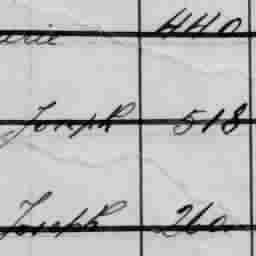 440
Joseph 518
Joseph 260